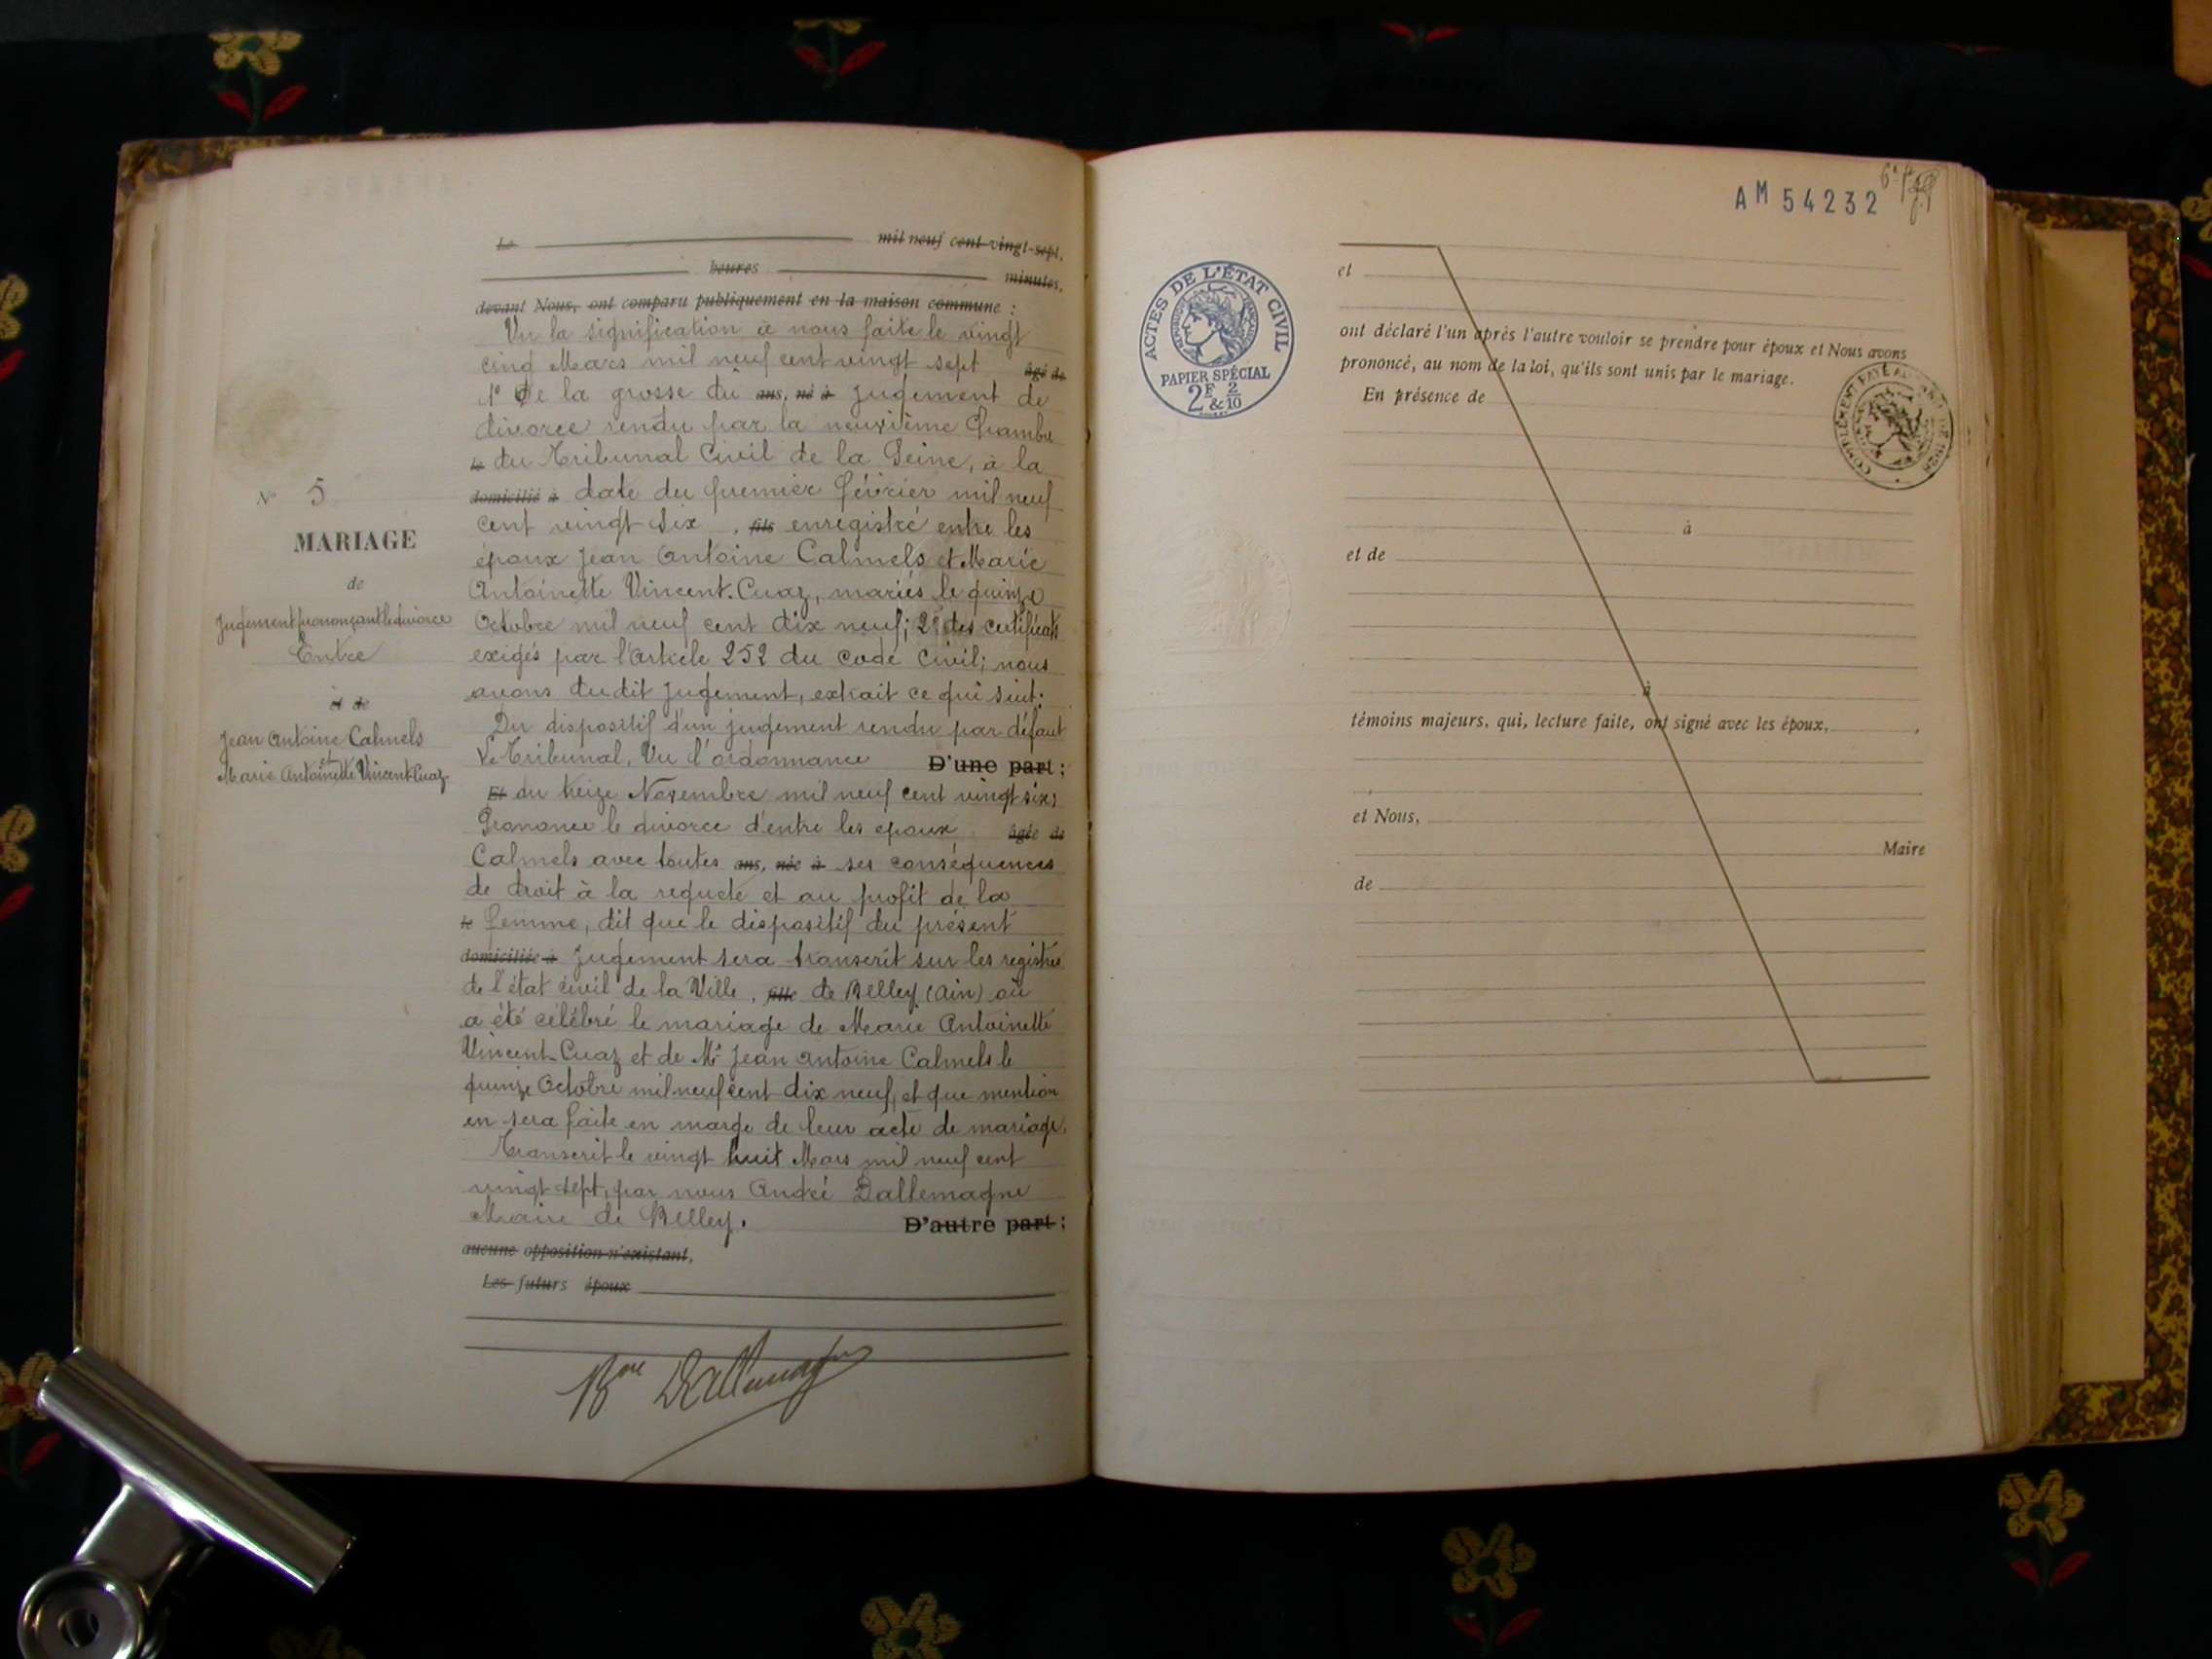 Le mil neuf cent vingt-sept,
heures minutes,
devant Nous, ont comparu publiquement en la maison commune :
Vu la signification à nous faite le vingt
cinq Mars mil neuf cent vingt sept âgé de
1° De la grosse du ans, né à jugement de
divorce rendu par la neuvième Chambre
le du Tribunal Civil de la Seine, à la
domicilié à date du premier février mil neuf
cent vingt six , fils enregistré entre les
époux Jean Antoine Calmels et Marie
Antoinette Vincent-Cuaz, mariés le quinze
Octobre mil neuf cent dix neuf; 2° des certificats
exigés par l'article 252 du code Civil; nous
avons dudit jugement, extrait ce qui suit:
Du dispositif d'un jugement rendu par défaut
Le Tribunal, Vu l'ordonnance D'une part :
Et du treize Novembre mil neuf cent vingt six;
Prononce le divorce d'entre les époux âgée de
Calmels avec toutes ans, née à ses conséquences
de droit à la requete et au profit de la
le femme, dit que le dispositif du présent
domiciliée à jugement sera transcrit sur les registres
de l'état civil de la Ville , fille de Belley (Ain) où
a été célébré le mariage de Marie Antoinette
Vincent-Cuaz et de Mr Jean Antoine Calmels le
quinze Octobre mil neuf cent dix neuf, et que mention
en sera faite en marge de leur acte de mariage.
Transcrit le vingt huit Mars mil neuf cent
vingt sept, par nous André Dallemagne
Maire de Belley. D'autre part :
aucune opposition n'existant,
Les futurs époux
Bon Dallemagne
N° 5
MARIAGE
de
Jugement prononçant le divorce
Entre
et de
Jean Antoine Calmels
et
Marie Antoinette Vincent-Cuaz
AM 54232
ACTES DE L'ÉTAT CIVIL
PAPIER SPÉCIAL
2F & 2/10
et
ont déclaré l'un après l'autre vouloir se prendre pour époux et Nous avons
prononcé, au nom de la loi, qu'ils sont unis par le mariage.
En présence de
à
et de
à
témoins majeurs, qui, lecture faite, ont signé avec les époux,
et Nous,
Maire
de